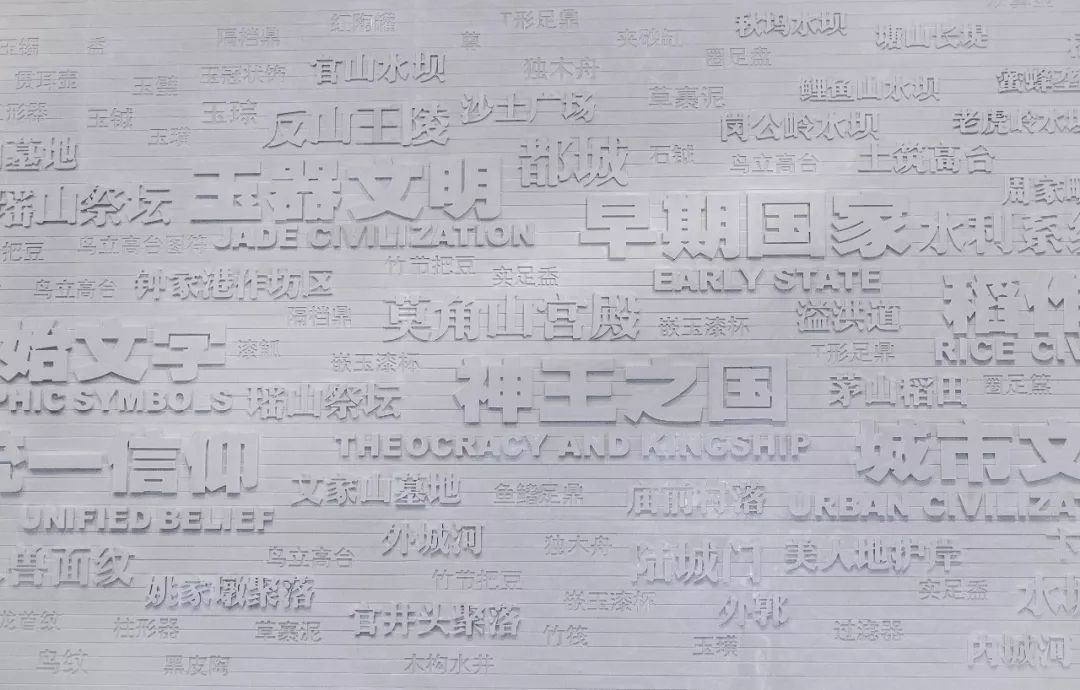 红陶罐 T形足鼎 秋坞水坝 塘山长堤
盉 隔档鼎 尊 夹砂缸 圈足盘
贯耳壶 玉璧 玉冠状饰 官山水坝 独木舟 鲤鱼山水坝
形器 玉钺 玉琮 反山王陵 沙土广场 草裹泥 岗公岭水坝 老虎岭水坝
墓地 玉璜 都城 石钺 鸟立高台 土筑高台
瑶山祭坛 玉器文明 早期国家 水利系统
JADE CIVILIZATION
EARLY STATE
把豆 鸟立高台图符 竹节把豆 实足盉
鸟立高台 钟家港作坊区 隔档鼎 莫角山宫殿 嵌玉漆杯 溢洪道 稻作
始文字 漆觚 嵌玉漆杯 T形足鼎 RICE CIV
PHIC SYMBOLS 瑶山祭坛 神王之国 茅山稻田 圈足簋
THEOCRACY AND KINGSHIP
一信仰 城市文
UNIFIED BELIEF 文家山墓地 鱼鳍足鼎 庙前村落 URBAN CIVILIZA
兽面纹 鸟立高台 外城河 独木舟 陆城门 美人地护岸
姚家墩聚落 竹节把豆 嵌玉漆杯 外郭 实足盉 水城
龙首纹 柱形器 草裹泥 官井头聚落 竹筏 玉璜 过滤器 内城河
鸟纹 黑皮陶 木构水井